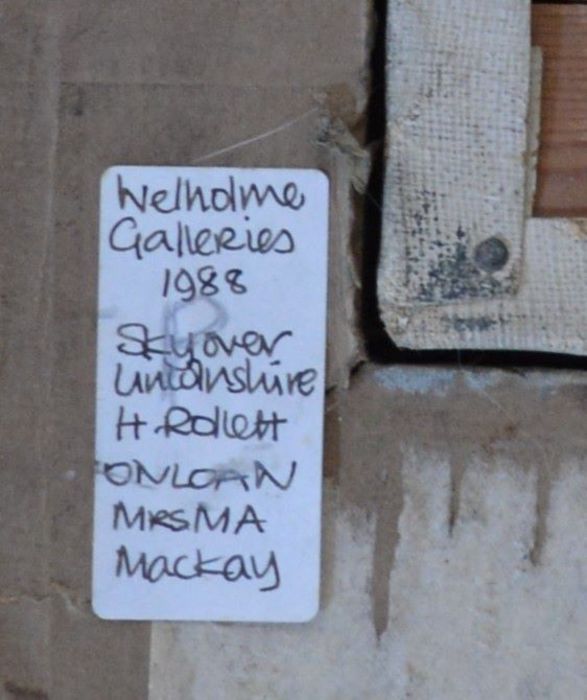 Welholme
Galleries
1988
Sky over
Lincolnshire
H. Rollett
ON LOAN
MRS MA
Mackay